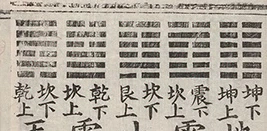 坤下
坤上
震下
坎上
坎下
艮上
乾下
坎上
坎下
乾上